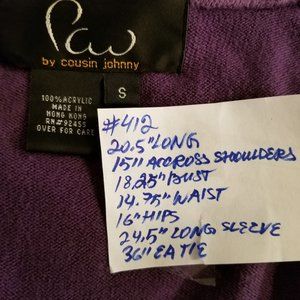 Paw
by cousin johnny
100% ACRYLIC
MADE IN
HONG KONG
RN#92455
OVER FOR CARE
S
#412
20.5" LONG
15" ACCROSS SHOULDERS
18.25" BUST
14.75" WAIST
16" HIPS
24.5" LONG SLEEVE
36" EA TIE